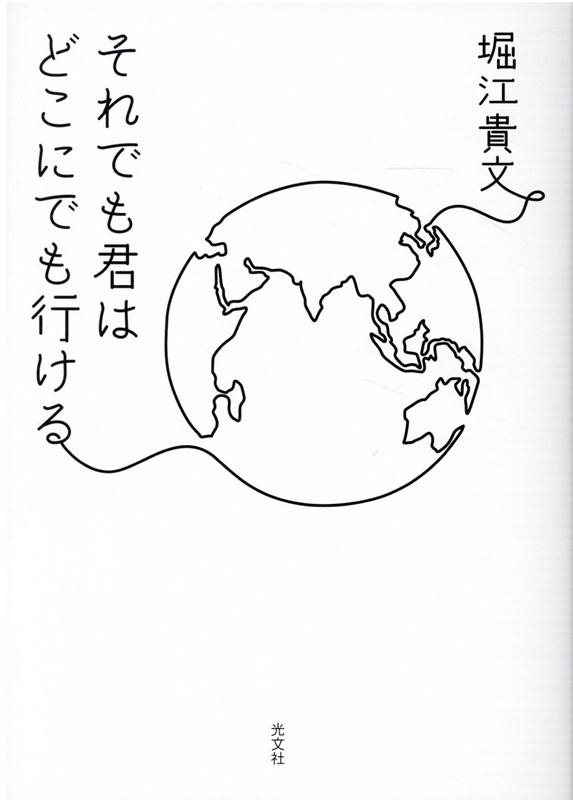 堀江貴文
それでも君は
どこにでも行ける
光文社